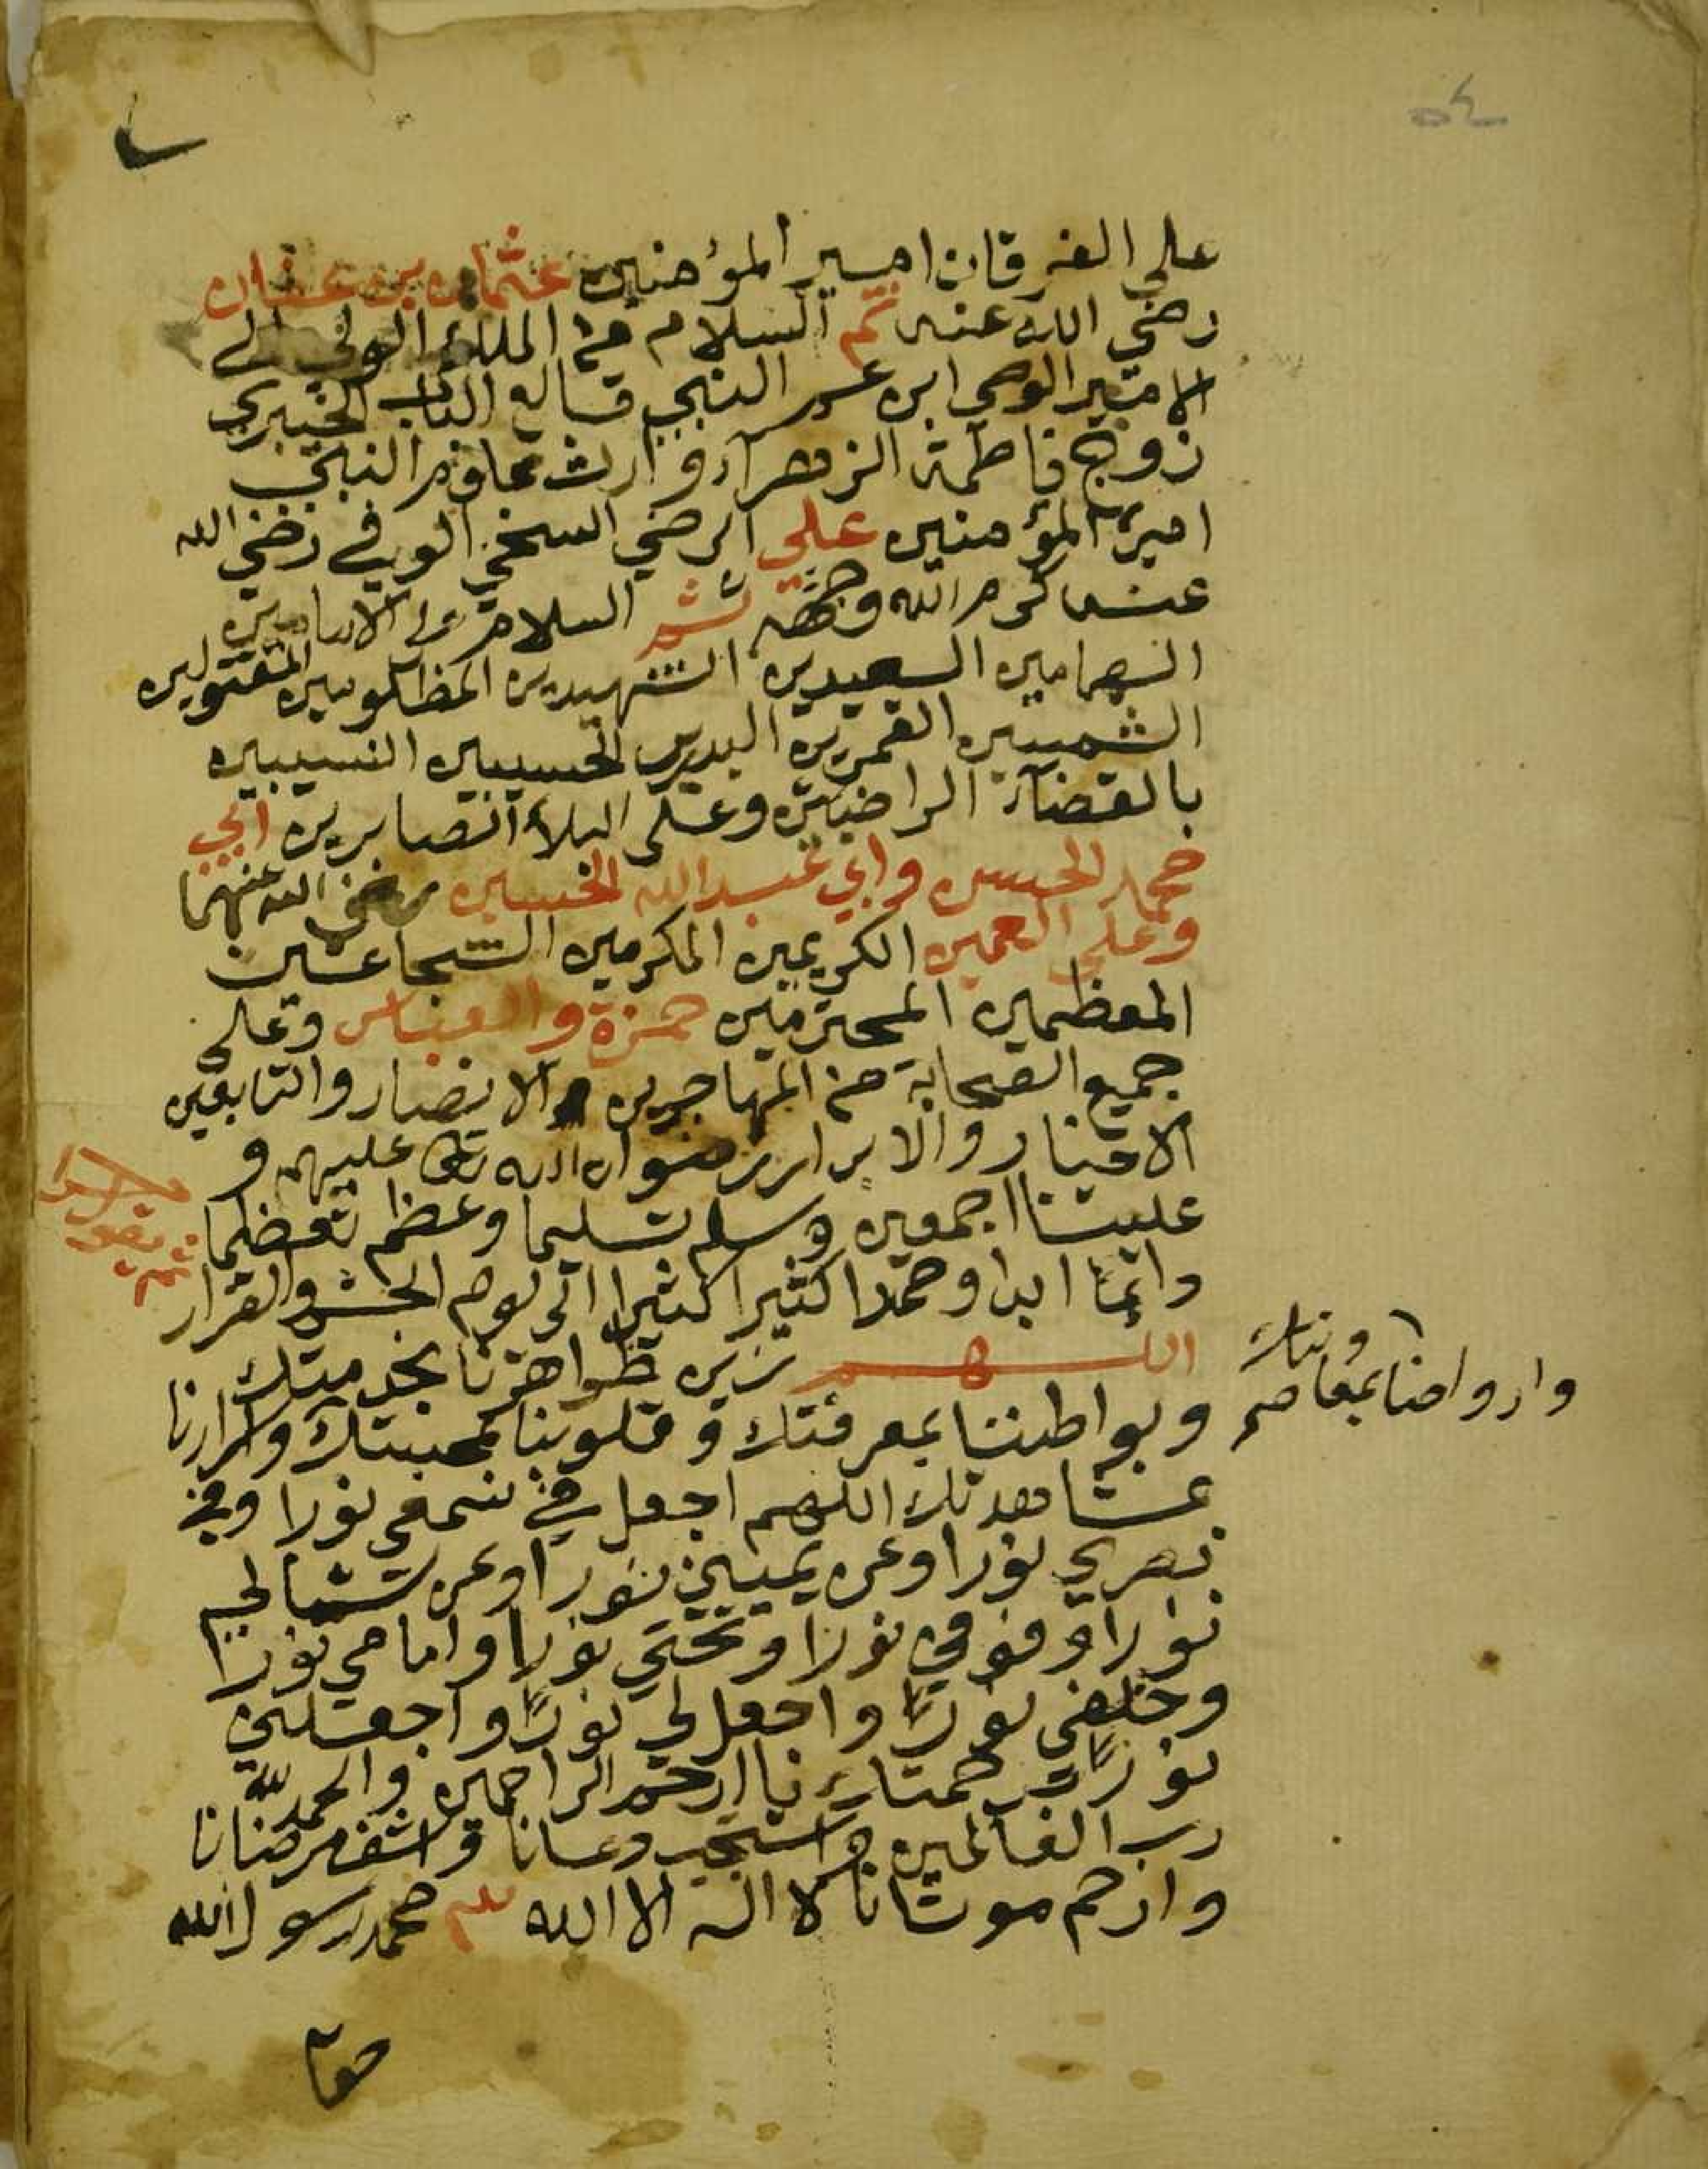 ٥٤
على الفرقان امير المؤمنين عثمان بن عفان
رضي الله عنه ثم السلام من الملك الولي الى
الامير الوصي ابن عم النبي قالع الباب الخيبري
زوج فاطمة الزهراء وارث علوم النبي
امير المؤمنين علي الرضي السخي الوفي رضي الله
عنه كرم الله وجهه ثم السلام على الامامين
الهمامين السعيدين الشهيدين المظلومين المقتولين
الشمسين القمرين البدرين الحسيبين النسيبين
بالقضاء الراضيين وعلى البلاء الصابرين ابي
محمد الحسن وابي عبد الله الحسين رضي الله عنهما
وعلى العمين الكريمين المكرمين الشجاعين
المعظمين المحترمين حمزة والعباس وعلى
جميع الصحابة من المهاجرين والانصار والتابعين
الاخيار والابرار رضوان الله تعالى عليهم و
علينا اجمعين وسلم تسليما وعظم تعظيما
دائما ابدا وحمدا كثيرا كثيرا الى يوم الحشر والقرار
ثم يقول
اللهم زين ظواهرنا بخدمتك
وبواطننا بمعرفتك وقلوبنا بمحبتك واسرارنا
وارواحنا بمعا صم
عشاهدتك اللهم اجعل في سمعي نورا وفي
بصري نورا وعن يميني نورا وعن شمالي
نورا وفوقي نورا وتحتي نورا وامامي نورا
وخلفي نورا واجعل لي نورا واجعلني
نورا برحمتك يا ارحم الراحمين والحمد لله
رب العالمين واستجب دعانا واشف مرضانا
وارحم موتانا لا اله الا الله محمد رسول الله